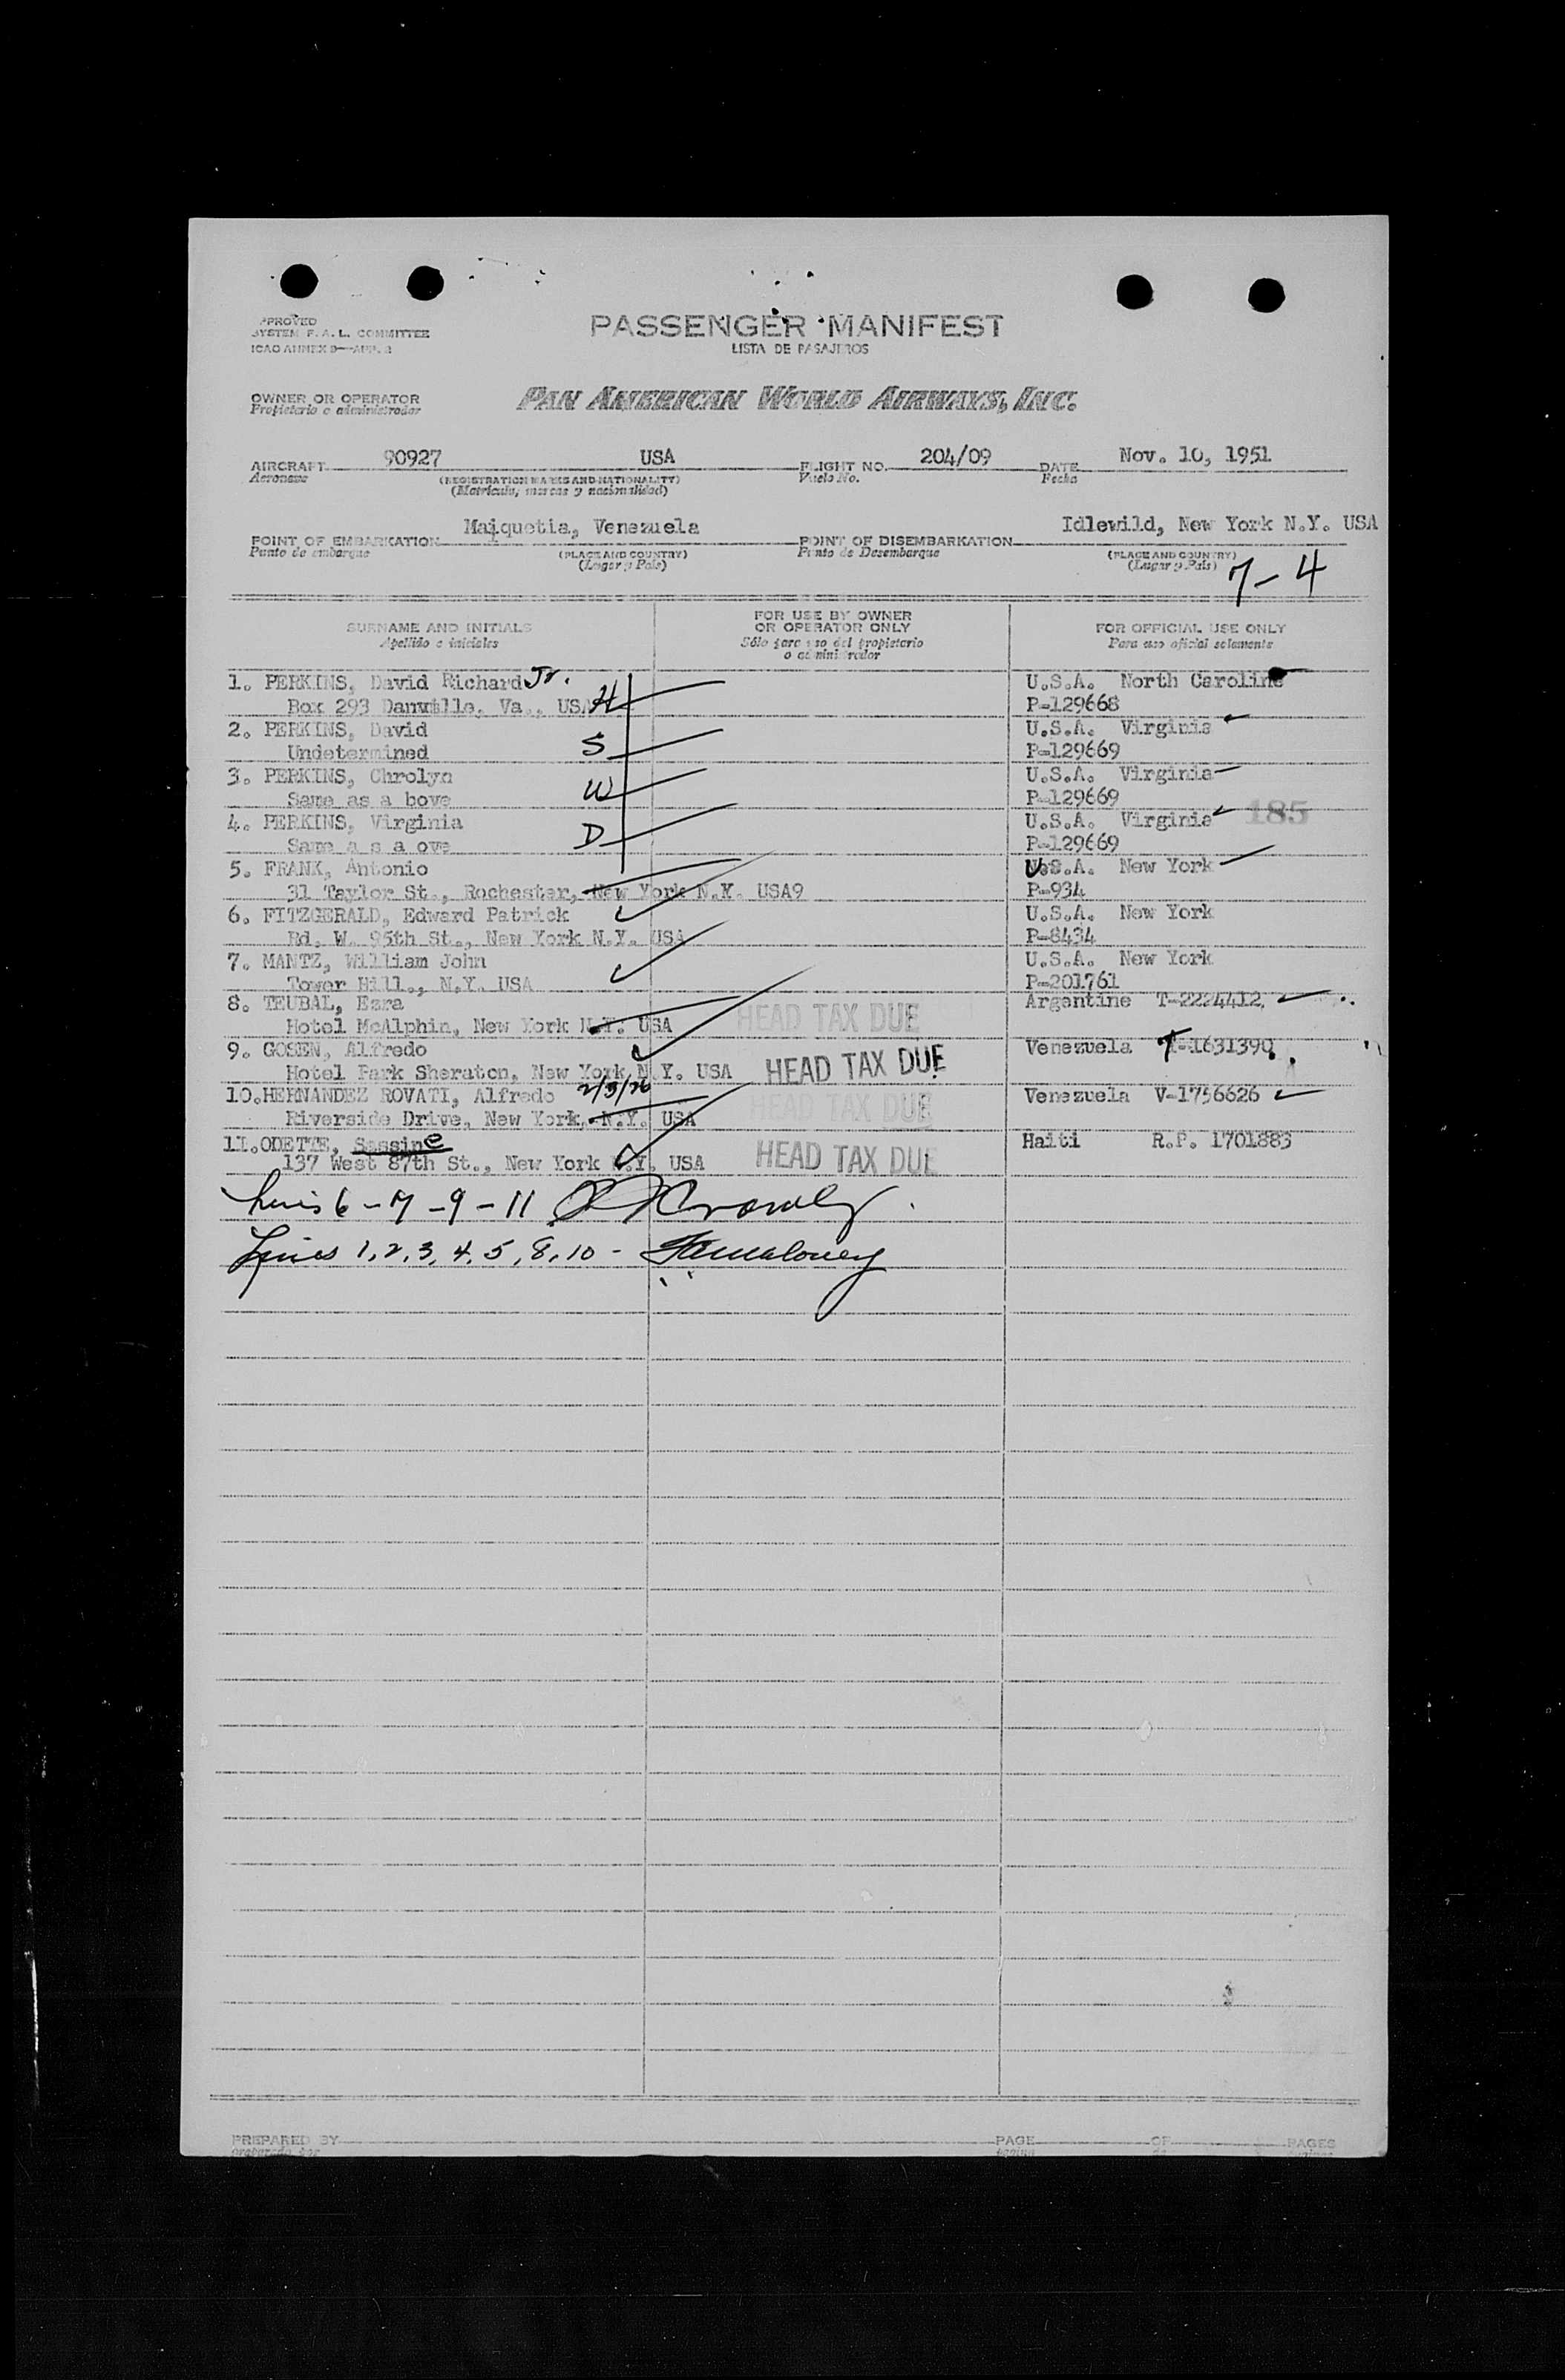 APPROVED
SYSTEM F. A. L. COMMITTEE
ICAO ANNEX 9—APP. 2
PASSENGER MANIFEST
LISTA DE PASAJEROS
OWNER OR OPERATOR
Propietario o administrador
PAN AMERICAN WORLD AIRWAYS, INC.
AIRCRAFT 90927 USA FLIGHT NO. 204/09 DATE Nov. 10, 1951
Aeronave (REGISTRATION MARKS AND NATIONALITY) Vuelo No. Fecha
(Matrícula, marcas y nacionalidad)
POINT OF EMBARKATION Maiquetia, Venezuela POINT OF DISEMBARKATION Idlewild, New York N.Y. USA
Punto de embarque (PLACE AND COUNTRY) Punto de Desembarque (PLACE AND COUNTRY)
(Lugar y País) (Lugar y País)
7-4
SURNAME AND INITIALS
Apellido e iniciales
FOR USE BY OWNER
OR OPERATOR ONLY
Sólo para uso del propietario
o administrador
FOR OFFICIAL USE ONLY
Para uso oficial solamente
1. PERKINS, David Richard Jr. U.S.A. North Carolina
Box 293 Danville, Va., USA H P-129668
2. PERKINS, David U.S.A. Virginia
Undetermined S P-129669
3. PERKINS, Chrolyn U.S.A. Virginia
Same as a bove W P-129669
4. PERKINS, Virginia U.S.A. Virginia 185
Same a s a ove D P-129669
5. FRANK, Antonio U.S.A. New York
31 Taylor St., Rochester, New York N.Y. USA9 P-934
6. FITZGERALD, Edward Patrick U.S.A. New York
Rd. W. 95th St., New York N.Y. USA P-8434
7. MANTZ, William John U.S.A. New York
Tower Hill., N.Y. USA P-201761
8. TEUBAL, Ezra Argentine T-2224412
Hotel McAlphin, New York N.Y. USA HEAD TAX DUE
9. GOSEN, Alfredo Venezuela T-1631390
Hotel Park Sheraton, New York N.Y. USA HEAD TAX DUE
10.HERNANDEZ ROVATI, Alfredo 2/3/26 Venezuela V-1756626
Riverside Drive, New York, N.Y. USA HEAD TAX DUE
11.ODETTE, Sassine Haiti R.P. 1701883
137 West 87th St., New York N.Y. USA HEAD TAX DUE
Lines 6-7-9-11
Lines 1,2,3,4,5,8,10 -
PREPARED BY PAGE OF PAGES
preparado por página de páginas